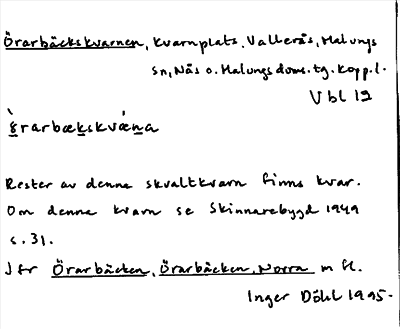 Örarbäckskvarnen, Kvarnplats, Vallerås, Malungs
sn, Näs o. Malungs doms. tg. Kopp. l.
Vbl 12
Rester av denna skvaltkvarn finns kvar.
Om denna kvarn se Skinnarebygd 1949
s. 31.
Jfr Örarbäcken, Örarbäcken, Norra m fl.
Inger Döhl 1995.